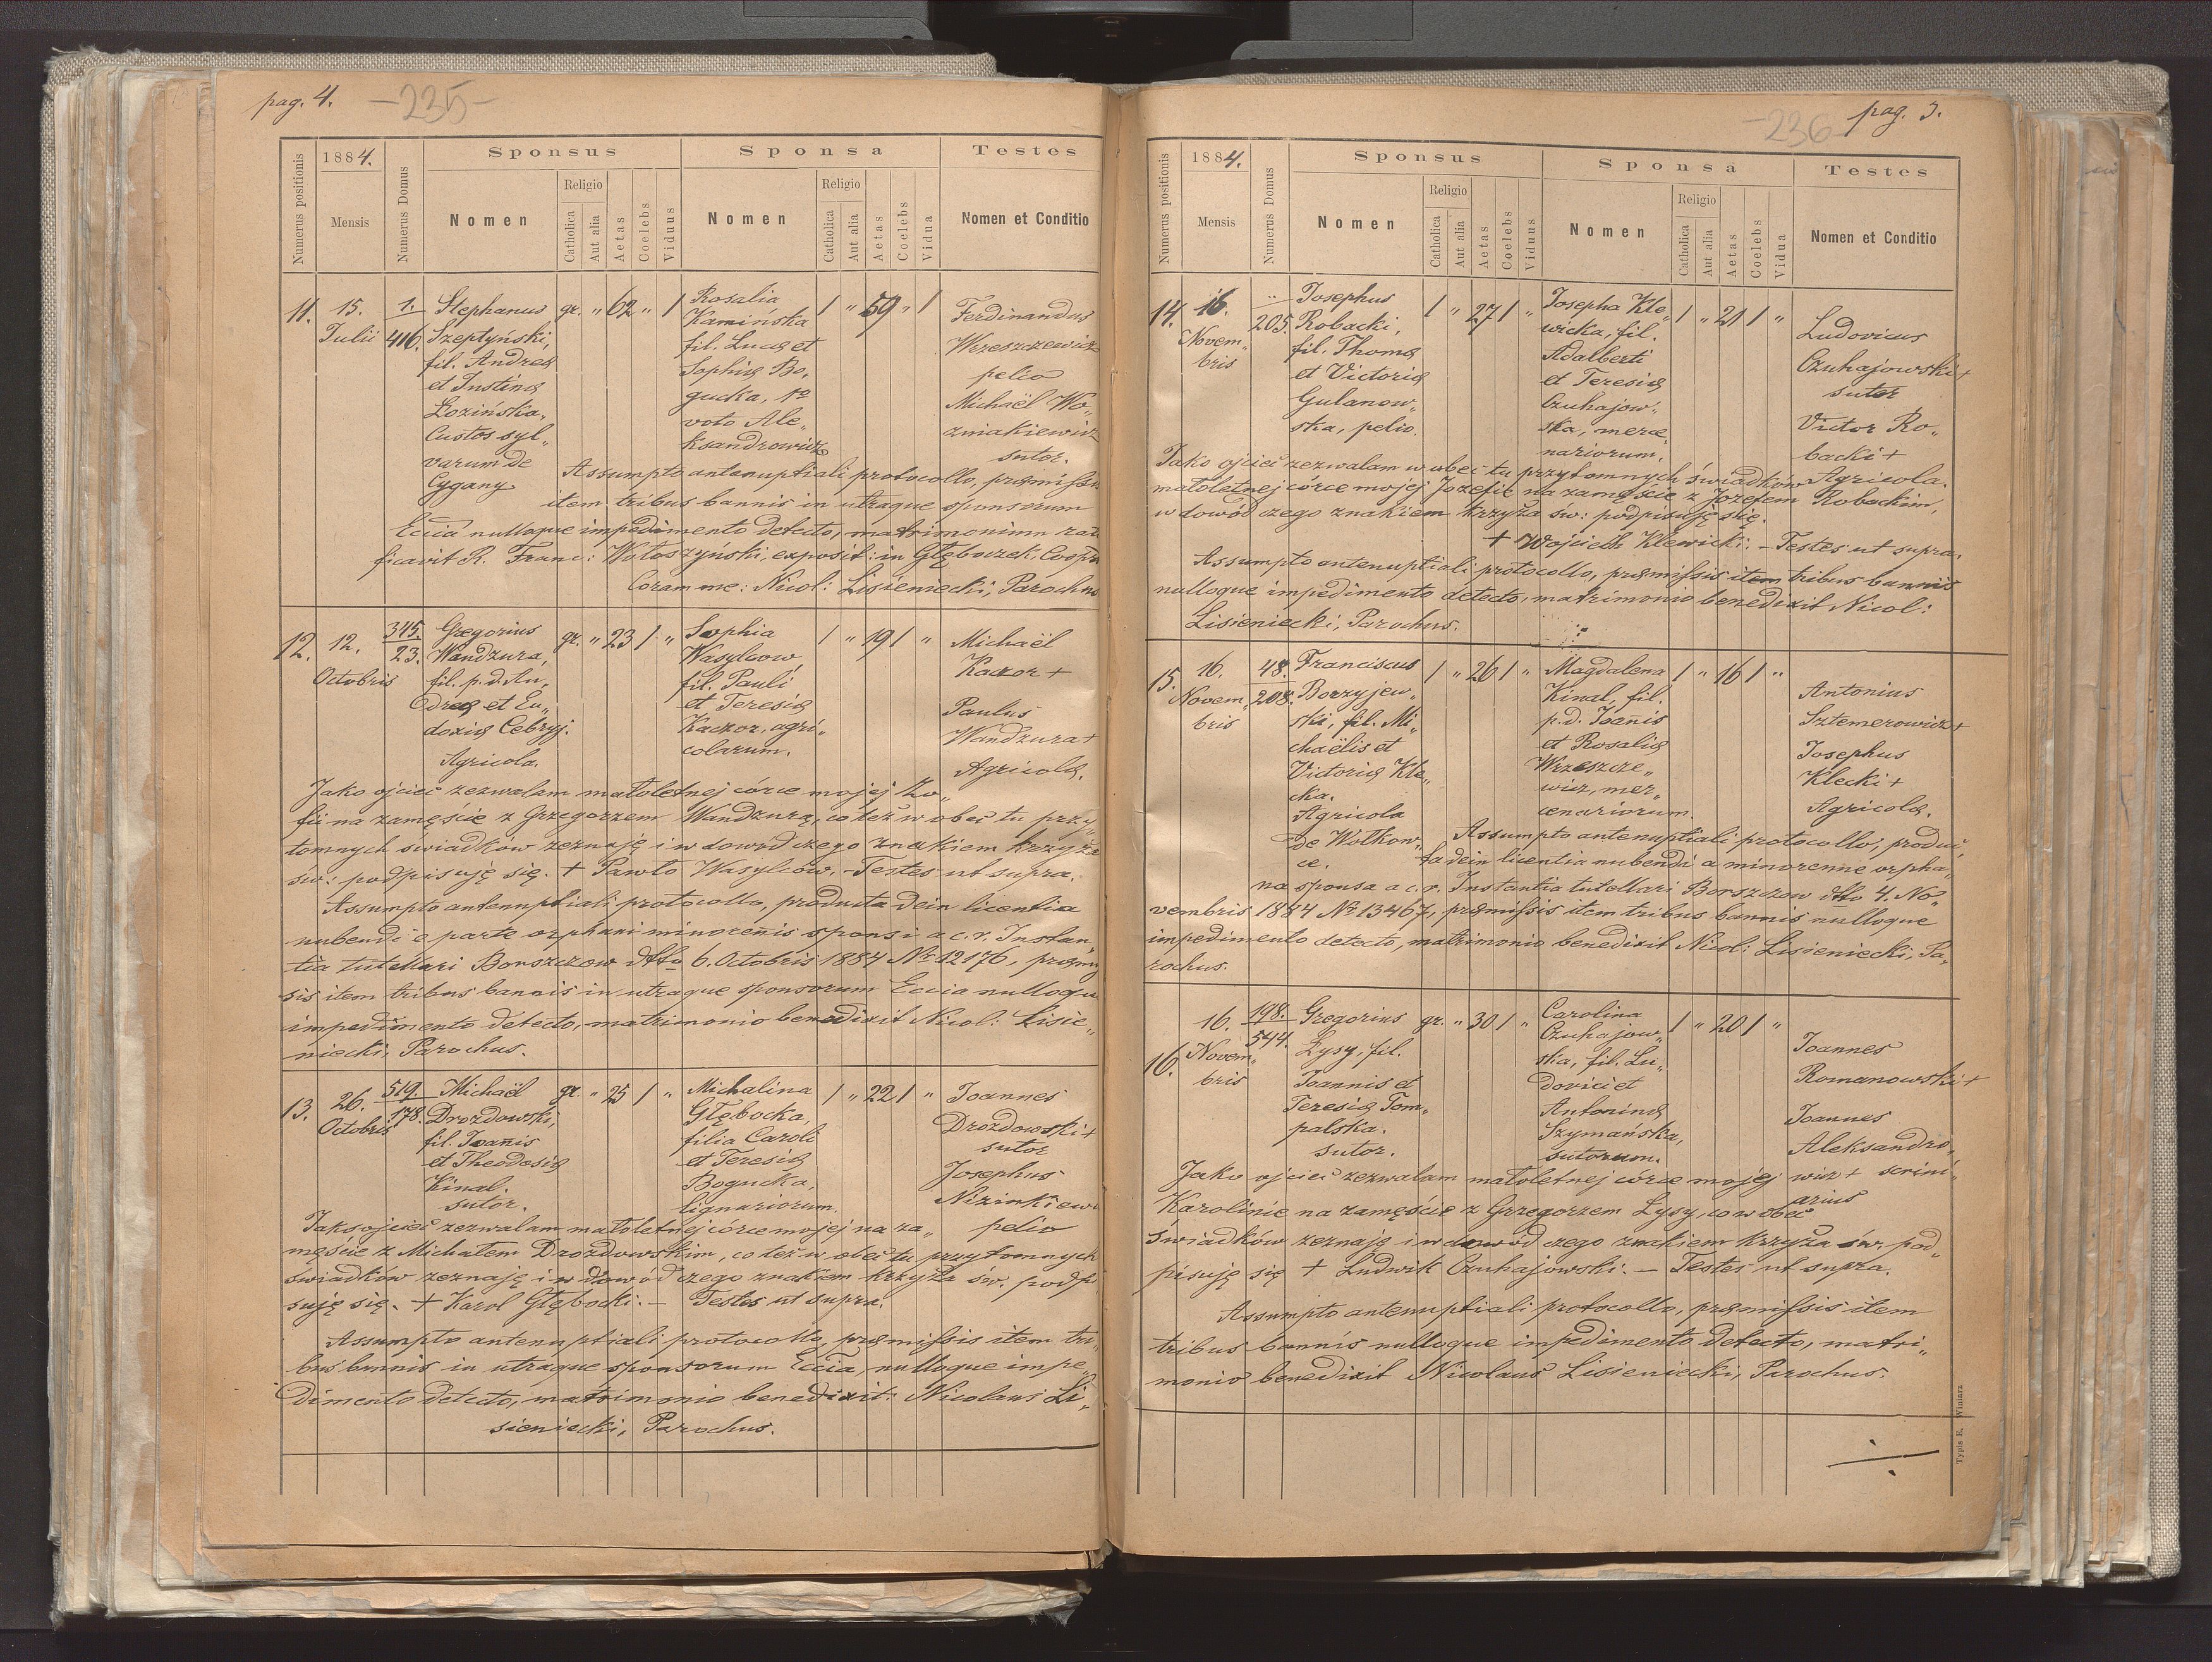 pag. 4.
-235-
Numerus positionis
1884.
Mensis
Numerus Domus
Sponsus
Nomen
Religio
Catholica
Aut alia
Aetas
Coelebs
Viduus
Sponsa
Nomen
Religio
Catholica
Aut alia
Aetas
Coelebs
Vidua
Testes
Nomen et Conditio
11. 15. Julii 1. 416.
Stephanus
Szeptyński,
fil. Andreæ
et Justinæ
Łozińska.
Custos syl„
varum de
Cygany
gr. " 62 " 1
Rosalia
Kamińska
fil. Lucæ et
Sophiæ Bo„
gucka, 1º
voto Ale„
ksandrowicz
1 " 59 " 1
Ferdinandus
Wrzeszczewicz
pelio
Michaël Wo„
zniakiewicz
sutor.
Assumpto antenuptiali protocollo, præmissis
item tribus bannis in utraque sponsorum
Eccia nulloque impedimento detecto, matrimonium rati
ficavit R. Franc: Wołoszyński, exposit: in Głęboczek, Coopr
Coram me: Nicol: Lisieniecki, Parochus
12. 12. Octobris 345. 23.
Gregorius
Wandzura,
fil. p. d. An„
dreæ et Eu„
doxiæ Cebryj.
Agricola.
gr. " 23 1 "
Sophia
Wasylcow,
fil. Pauli
et Teresiæ
Kaczor, agri„
colarum.
1 " 19 1 "
Michaël
Kaczor +
Paulus
Wandzura +
Agricolæ.
Jako ojciec zezwalam małoletnej córce mojej Zo„
fii na zamęście z Grzegorzem Wandzurą, co też w obec tu przy„
tomnych świadków zeznaję i w dowód czego znakiem krzyża
św: podpisuję się. + Pawło Wasylców. - Testes ut supra.
Assumpto antenuptiali protocollo, producta dein licentia
nubendi e parte orphani minorenis sponsi a c. r. Instan„
tia tutellari Borszczow ddto 6. Octobris 1884 Nº 12176, præmis
sis item tribus bannis in utraque sponsorum Eccia nulloque
impedimento detecto, matrimonio benedixit Nicol: Lisie„
niecki, Parochus.
13. 26. Octobris 519. 178.
Michaël
Drozdowski,
fil. Joañis
et Theodosiæ
Kinal.
sutor.
gr. " 25 1 "
Michalina
Głębocka,
filia Caroli
et Teresiæ
Bogucka,
lignariorum.
1 " 22 1 "
Joannes
Drozdowski +
sutor
Josephus
Nizinkiew
pelio
Jako ojciec zezwalam małoletnej córce mojej na za„
męście z Michałem Drozdowskim, co też w obec tu przytomnych
świadków zeznaję i w dowód czego znakiem krzyża św. podpi
suję się. + Karol Głębocki. - Testes ut supra.
Assumpto antenuptiali protocollo, præmissis item tri„
bus bannis in utraque sponsorum Eccia, nulloque impe„
dimento detecto, matrimonio benedixit: Nicolaus Li„
sieniecki, Parochus.
pag. 3.
-236
Numerus positionis
1884.
Mensis
Numerus Domus
Sponsus
Nomen
Religio
Catholica
Aut alia
Aetas
Coelebs
Viduus
Sponsa
Nomen
Religio
Catholica
Aut alia
Aetas
Coelebs
Vidua
Testes
Nomen et Conditio
14. 16. Novem„ bris " 205.
Josephus
Robacki,
fil. Thomæ
et Victoriæ
Gulanow„
ska, pelio.
1 " 27 1 "
Josepha Kle„
wicka, fil.
Adalberti
et Teresiæ
Czuhajow„
ska, merce„
nariorum.
1 " 21 1 "
Ludovicus
Czuhajowski +
sutor
Victor Ro„
backi +
Agricola.
Jako ojciec zezwalam w obec tu przytomnych świadków
małoletnej córce mojej Józefie na zamęście z Józefem Robackim,
w dowód czego znakiem krzyża św: podpisuję się.
+ Wojciech Klewicki. - Testes ut supra.
Assumpto antenuptiali protocollo, præmissis item tribus bannis
nulloque impedimento detecto, matrimonio benedixit Nicol:
Lisieniecki, Parochus.
15. 16. Novem„ bris 48. 208.
Franciscus
Borzyjew„
ski, fil. Mi„
chaëlis et
Victoriæ Kle„
cka.
Agricola
de Wołkow„
ce.
1 " 26 1 "
Magdalena
Kinal, fil.
p. d. Joañis
et Rosaliæ
Wrzeszcze„
wicz, mer„
cenariorum.
1 " 16 1 "
Antonius
Sztemerowicz +
Josephus
Klecki +
Agricolæ.
Assumpto antenuptiali protocollo, produc„
ta dein licentia nubendi a minorenne orpha„
na sponsa a c. r. Instantia tutellari Borszczow ddto 4. No„
vembris 1884 Nº 13467, præmissis item tribus bannis nulloque
impedimento detecto, matrimonio benedixit Nicol: Lisieniecki, Pa„
rochus.
16. 16. Novem„ bris 198. 544.
Gregorius
Łysy, fil.
Joannis et
Teresiæ Tom„
palska.
sutor.
gr. " 30 1 "
Carolina
Czuhajow„
ska, fil. Lu„
dovici et
Antoninæ
Szymańska,
sutorum.
1 " 20 1 "
Joannes
Romanowski +
Joannes
Aleksandro„
wicz + scrini„
arius
Jako ojciec zezwalam małoletnej córce mojej
Karolinie na zamęście z Grzegorzem Łysy, co w obec
świadków zeznaję i w dowód czego znakiem krzyża św. pod„
pisuję się + Ludwik Czuhajowski. - Testes ut supra.
Assumpto antenuptiali protocollo, præmissis item
tribus bannis nulloque impedimento detecto, matri„
monio benedixit Nicolaus Lisieniecki, Parochus.
Typis E. Winiarz